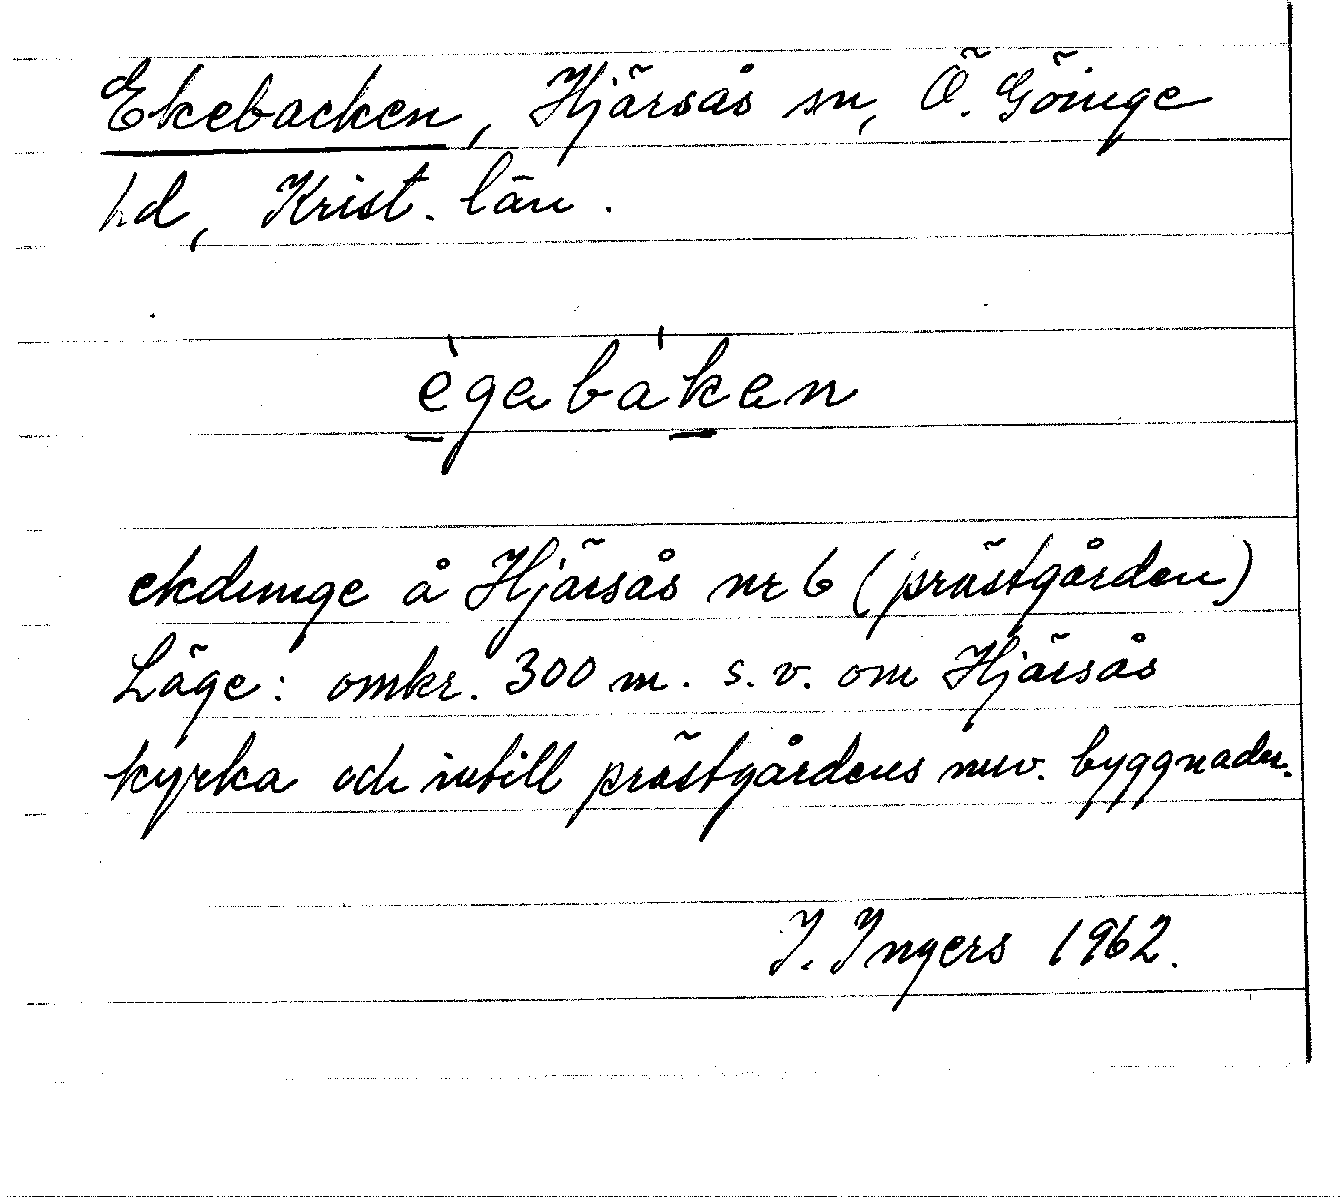 Ekebacken, Hjärsås sn, Ö. Göinge
hd, Krist. län.
ègabàkan
ekdunge å Hjärsås nr 6 (prästgården)
Läge: omkr. 300 m. s.v. om Hjärsås
kyrka och intill prästgårdens nuv. byggnader.
I. Ingers 1962.